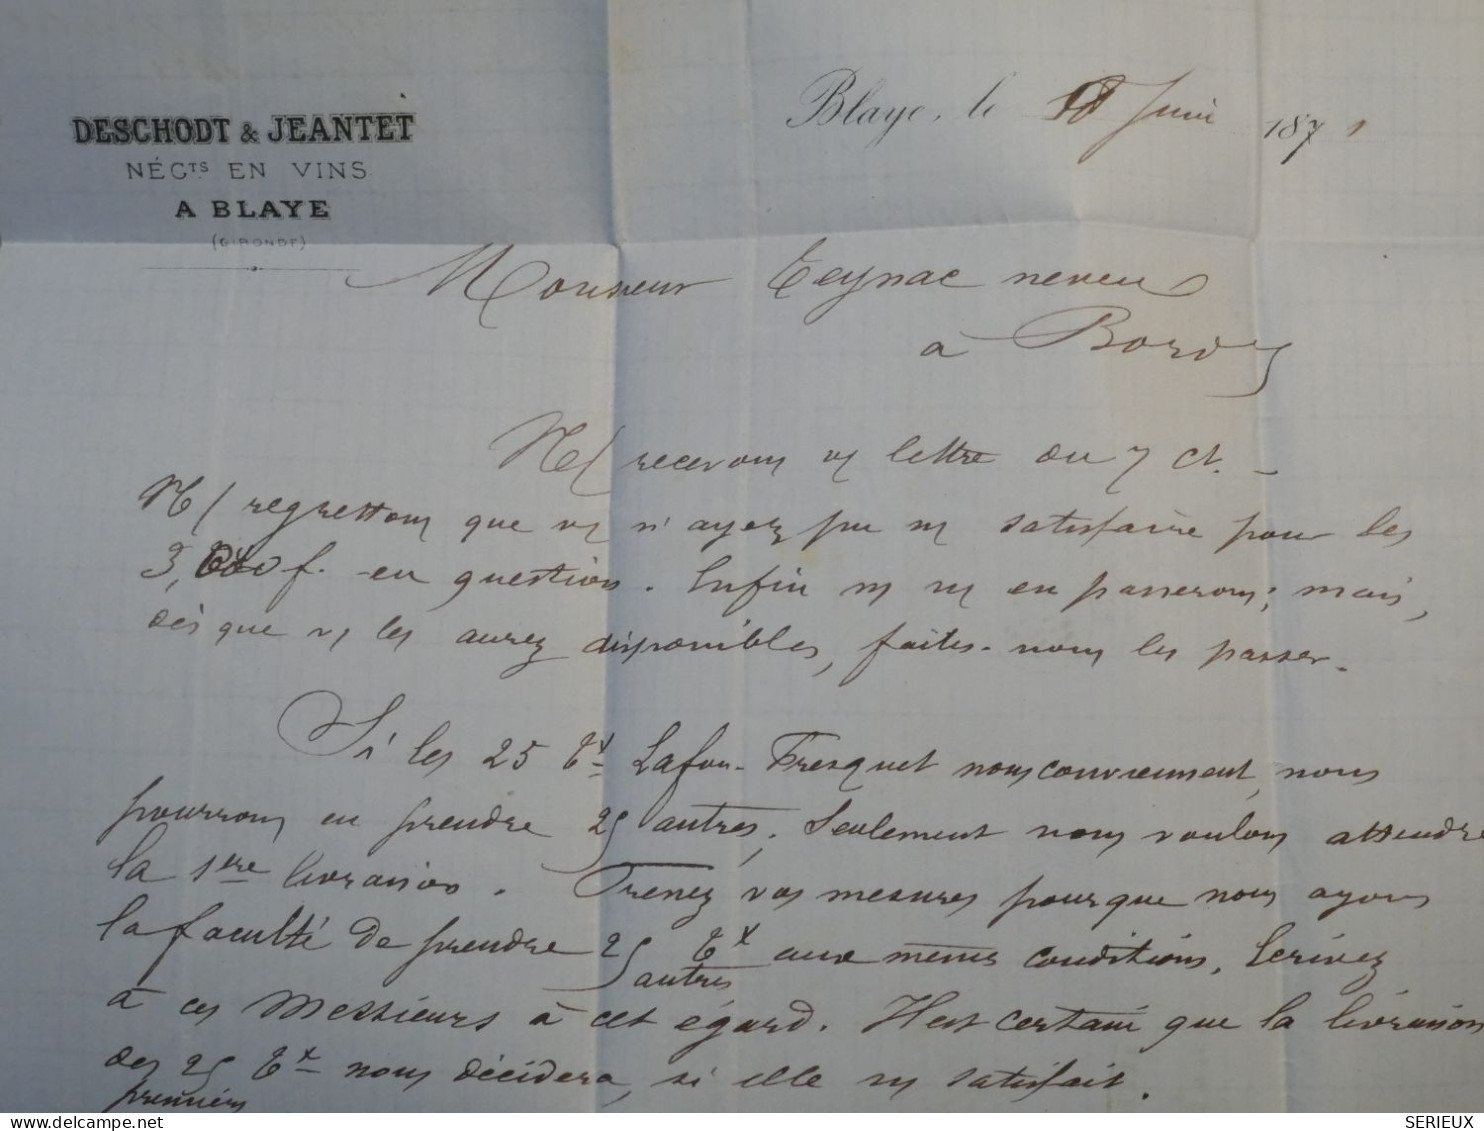 DESCHODT & JEANTET
NÉGTS EN VINS
A BLAYE
(GIRONDE)
Blaye, le 8 Juin 1871
Monsieur Teynac neveu
à Bordx
N/ recevons v/ lettre du 7 ct. -
N/ regrettons que vs n'ayez pu ns satisfaire pour les
3,000 f. en question. Enfin ns ns en passerons; mais,
dès que vs les aurez disponibles, faites-nous les passer.
Si les 25 Tx Lafon-Fresquet nous conviennent, nous
pourrons en prendre 25 autres. Seulement nous voulons attendre
la 1ere livraison. Prenez vos mesures pour que nous ayons
la faculté de prendre 25 Tx aux mêmes conditions. Ecrivez
autres
à ces Messieurs à cet égard. Il est certain que la livraison
des 25 Tx nous décidera, si elle ns satisfait.
premiers
SERIEUX
delcampe.net